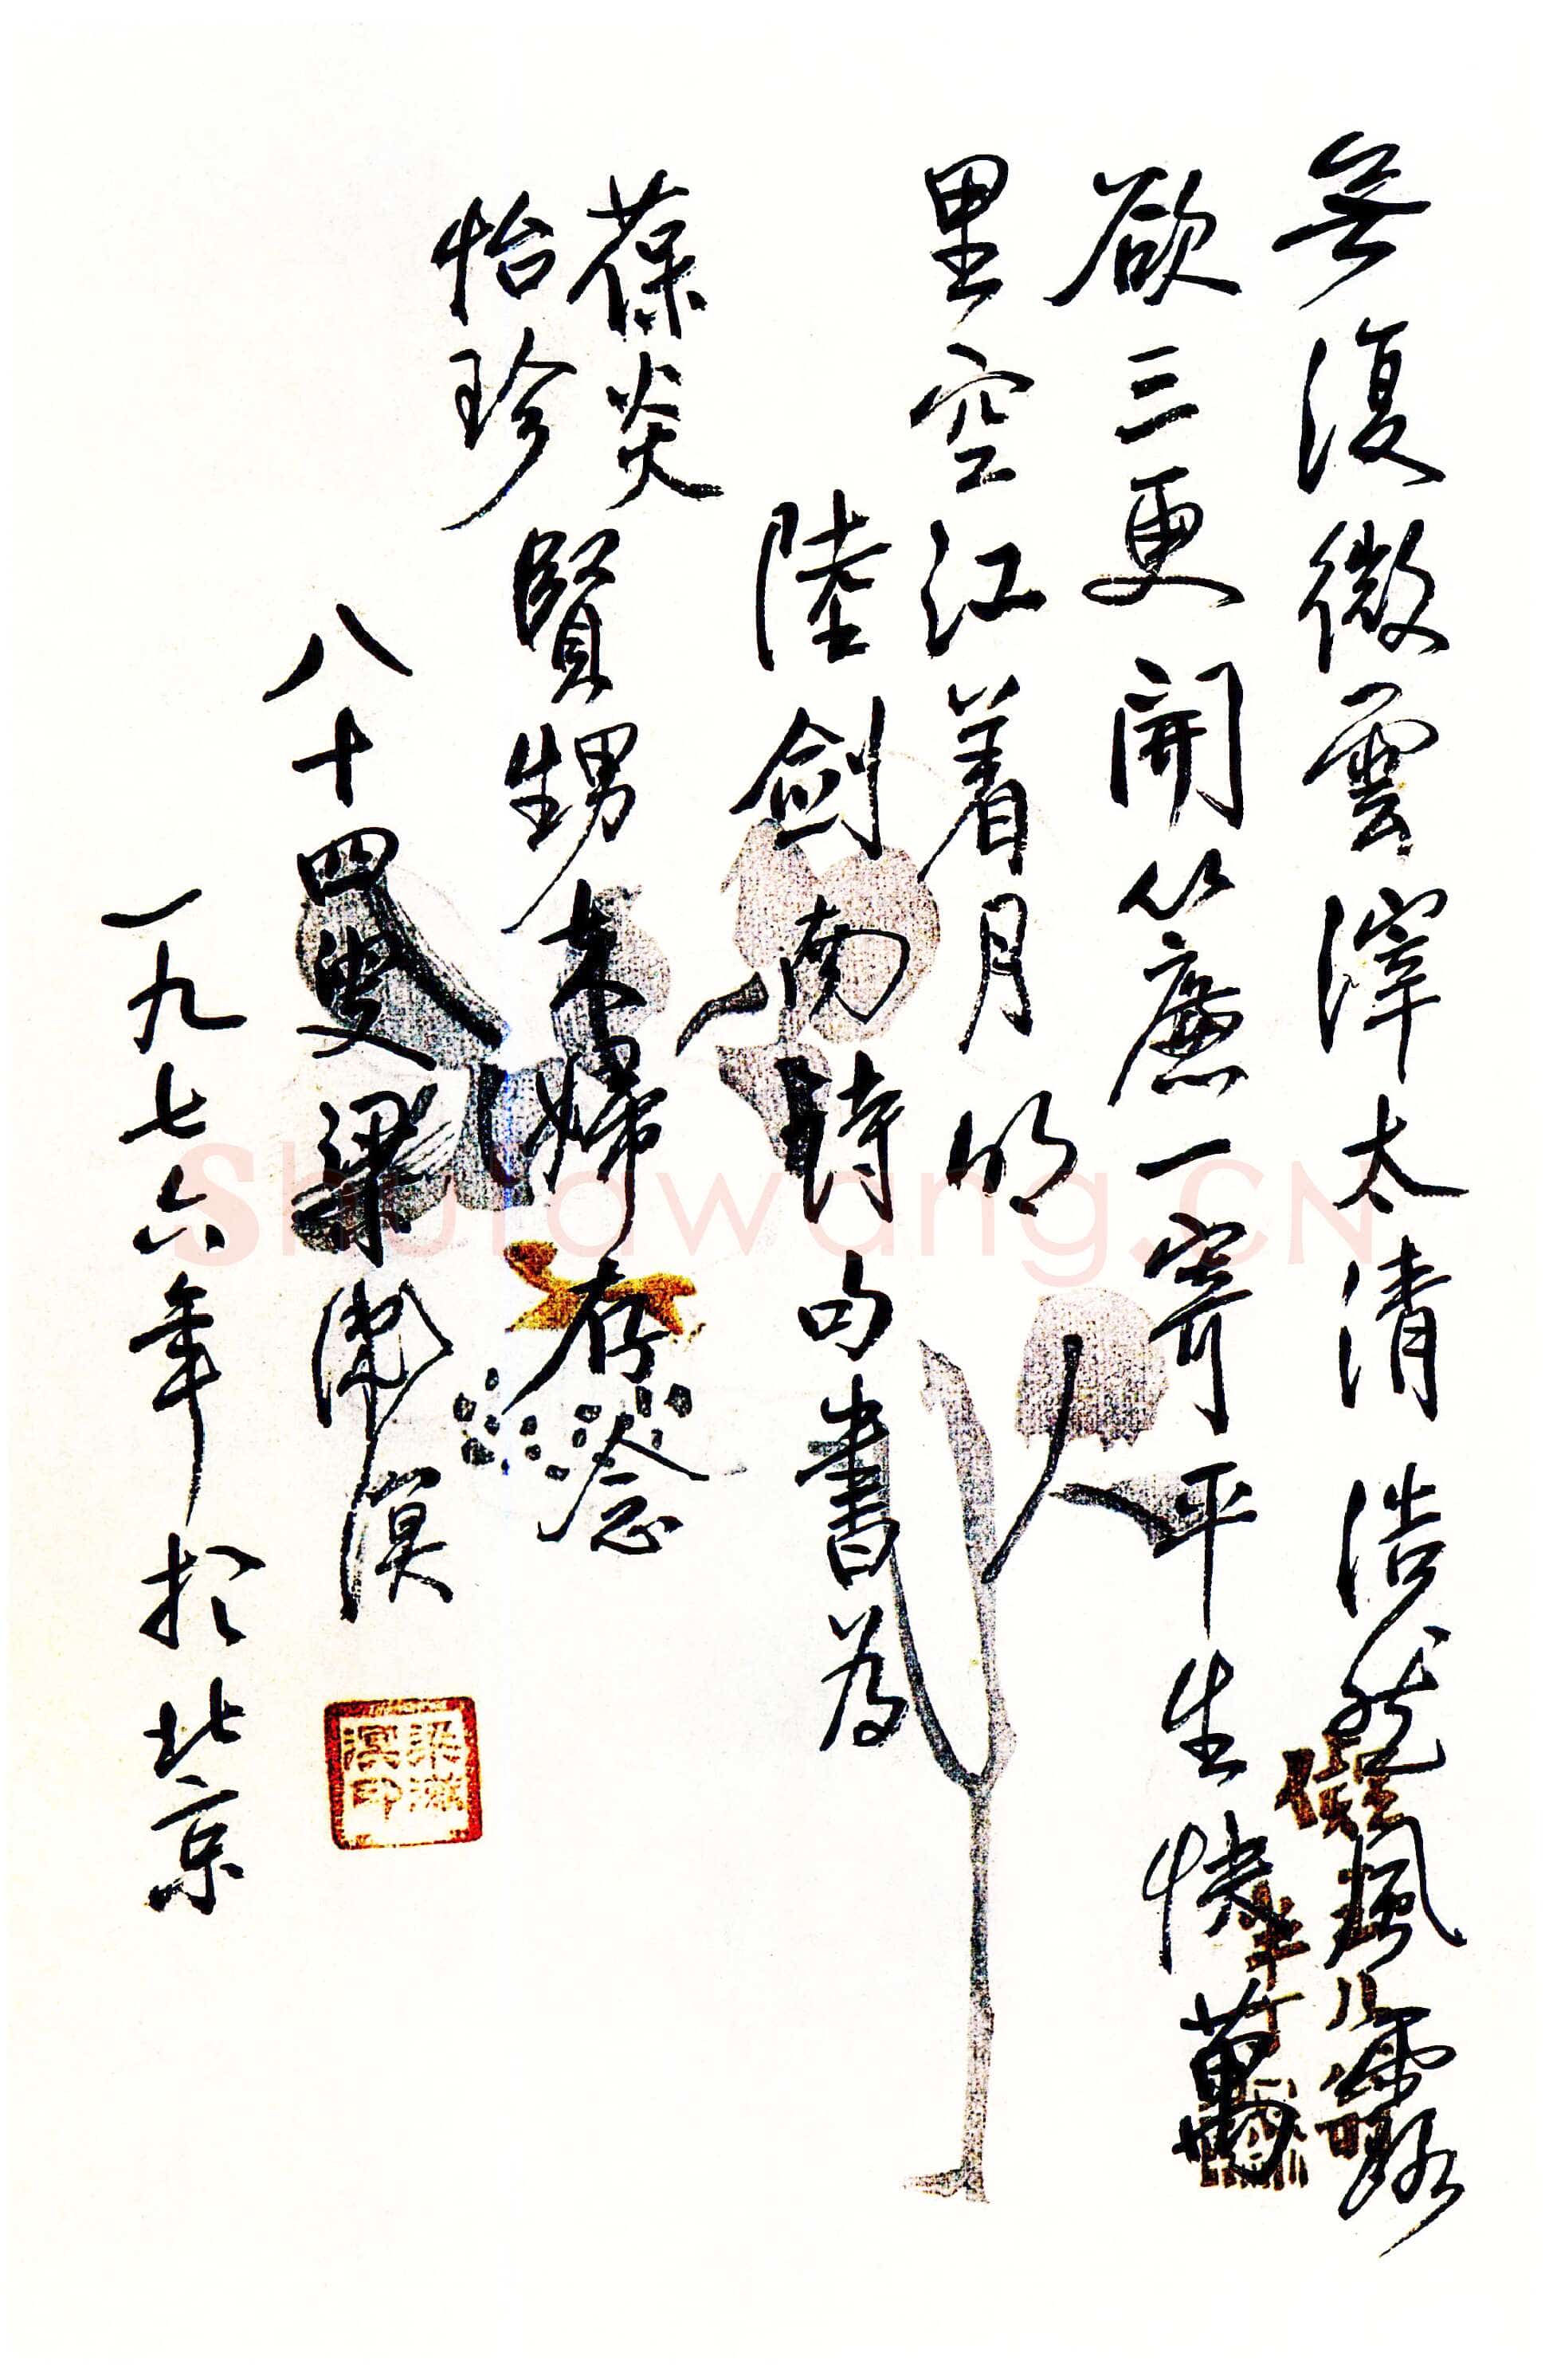 無復微雲滓太清浩然風露
欲三更開簾一寄平生快萬
里空江着月明
陸劍南詩句書為
葆炎
怡珍
賢甥夫婦存念
八十四叟梁漱溟
一九七六年於北京
梁漱溟印
Shufawang.CN